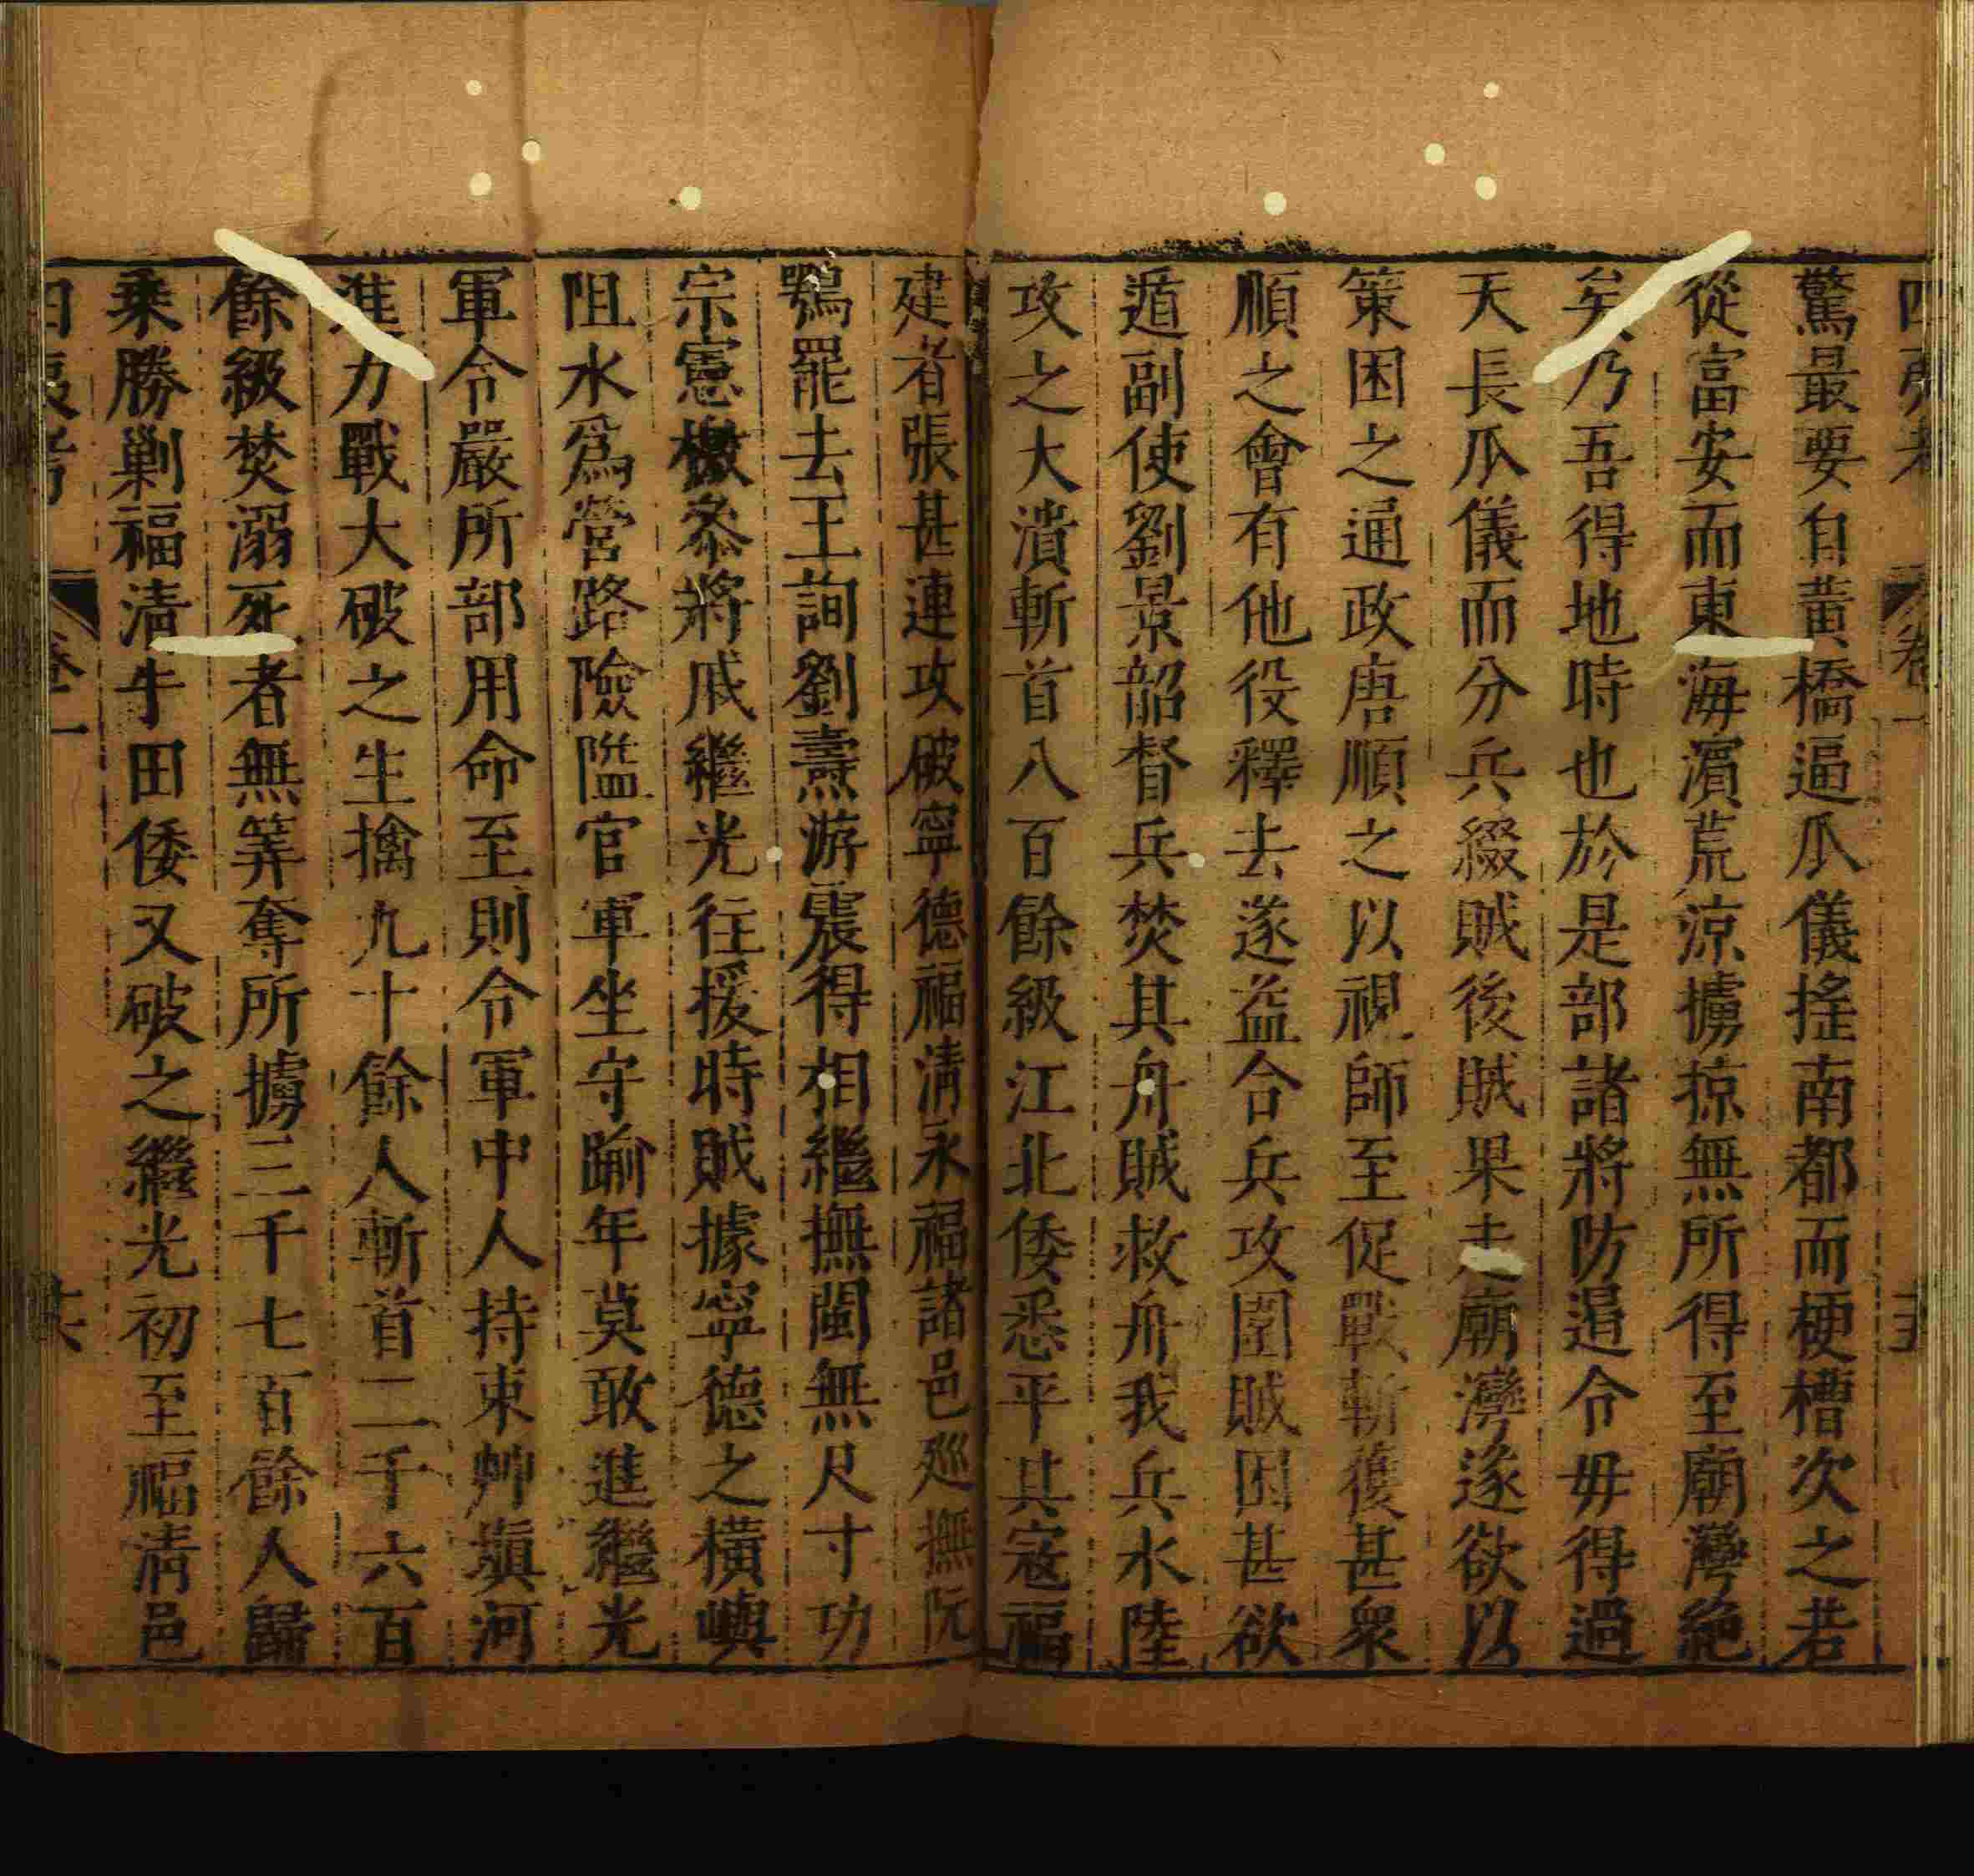 四夷考 卷一
驚最要自黃橋逼瓜儀搖南都而梗槽次之若
從富安而東海濵荒涼擄掠無所得至廟灣絶
矣乃吾得地時也於是部諸將防遏令毋得過
天長瓜儀而分兵綴賊後賊果走廟灣遂欲以
策困之通政唐順之以視師至促戰斬獲甚衆
順之會有他役釋去遂益合兵攻圍賊困甚欲
遁副使劉景韶督兵焚其舟賊救舟我兵水陸
攻之大潰斬首八百餘級江北倭悉平其寇福
建者張甚連攻破寧德福淸永福諸邑廵撫阮
鶚罷去王詢劉燾游震得相繼撫閩無尺寸功
宗憲檄叅將戚繼光往援時賊據寧德之橫嶼
阻水爲營路險隘官軍坐守踰年莫敢進繼光
軍令嚴所部用命至則令軍中人持束艸塡河
進力戰大破之生擒九十餘人斬首二千六百
餘級焚溺死者無筭奪所擄三千七百餘人歸
乗勝剿福淸牛田倭又破之繼光初至福淸邑
四夷考 卷一 共